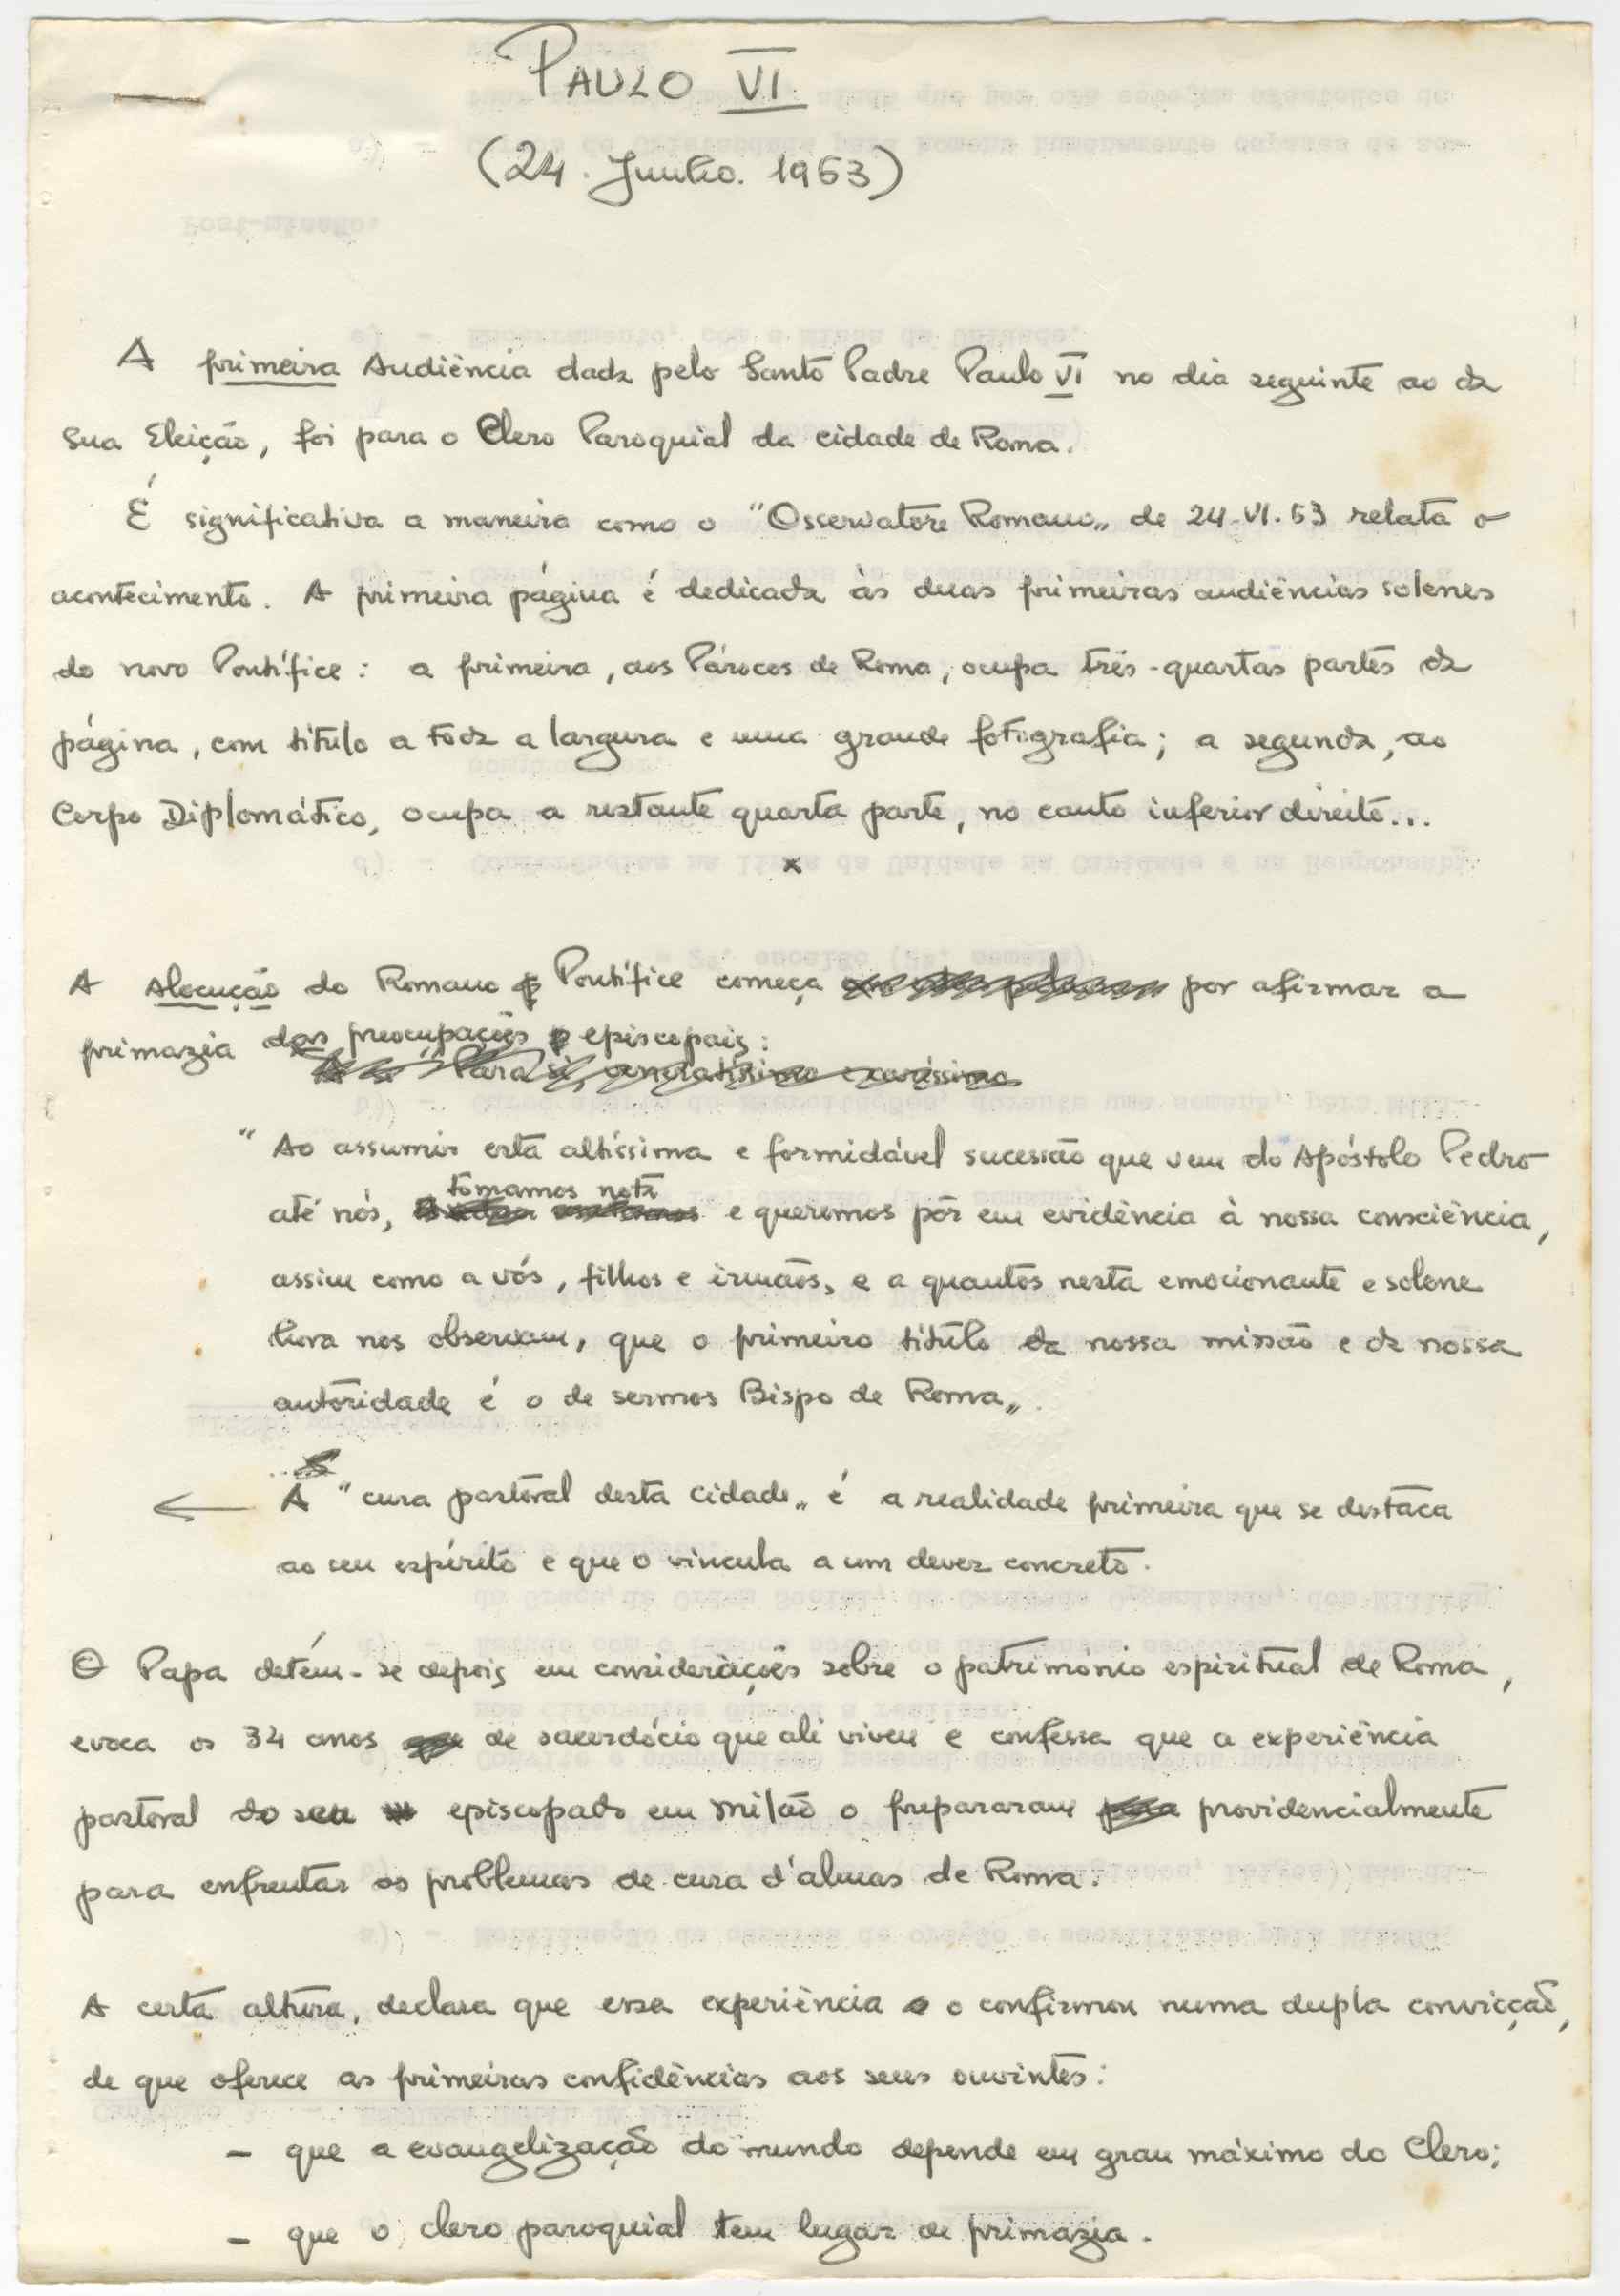 PAULO VI
(24. Junho. 1963)
A primeira Audiência dada pelo Santo Padre Paulo VI no dia seguinte ao da
sua Eleição, foi para o Clero Paroquial da cidade de Roma.
É significativa a maneira como o "Osservatore Romano„ de 24-VI-63 relata o
acontecimento. A primeira página é dedicada às duas primeiras audiências solenes
do novo Pontífice: a primeira, aos Párocos de Roma, ocupa três-quartas partes da
página, com título a toda a largura e uma grande fotografia; a segunda, ao
Corpo Diplomático, ocupa a restante quarta parte, no canto inferior direito...
x
A Alocução do Romano Pontífice começa por afirmar a
primazia das preocupações episcopais:
Para si, veneratíssimo e caríssimo
"Ao assumir esta altíssima e formidável sucessão que vem do Apóstolo Pedro
tomamos nota
até nós, e queremos pôr em evidência à nossa consciência,
assim como a vós, filhos e irmãos, e a quantos nesta emocionante e solene
hora nos observam, que o primeiro título da nossa missão e da nossa
autoridade é o de sermos Bispo de Roma„.
← A "cura pastoral desta cidade„ é a realidade primeira que se destaca
ao seu espírito e que o vincula a um dever concreto.
O Papa detém-se depois em considerações sobre o património espiritual de Roma,
evoca os 34 anos de sacerdócio que ali viveu e confessa que a experiência
pastoral do seu episcopado em Milão o prepararam providencialmente
para enfrentar os problemas de cura d'almas de Roma.
A certa altura, declara que essa experiência o confirmou numa dupla convicção,
de que oferece as primeiras confidências aos seus ouvintes:
– que a evangelização do mundo depende em grau máximo do Clero;
– que o clero paroquial tem lugar de primazia.